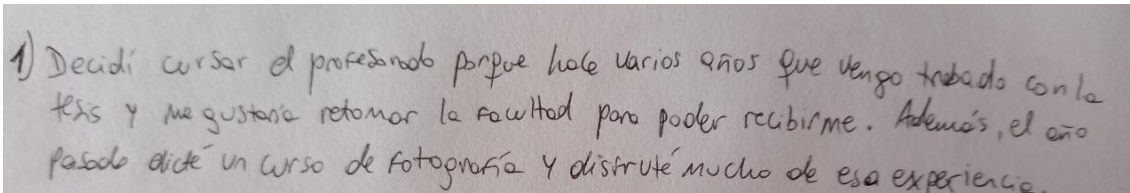 1) Decidí cursar el profesorado porque hace varios años que vengo trabado con la
tesis y me gustaría retomar la facultad para poder recibirme. Además, el año
pasado dicté un curso de fotografía y disfruté mucho de esa experiencia.